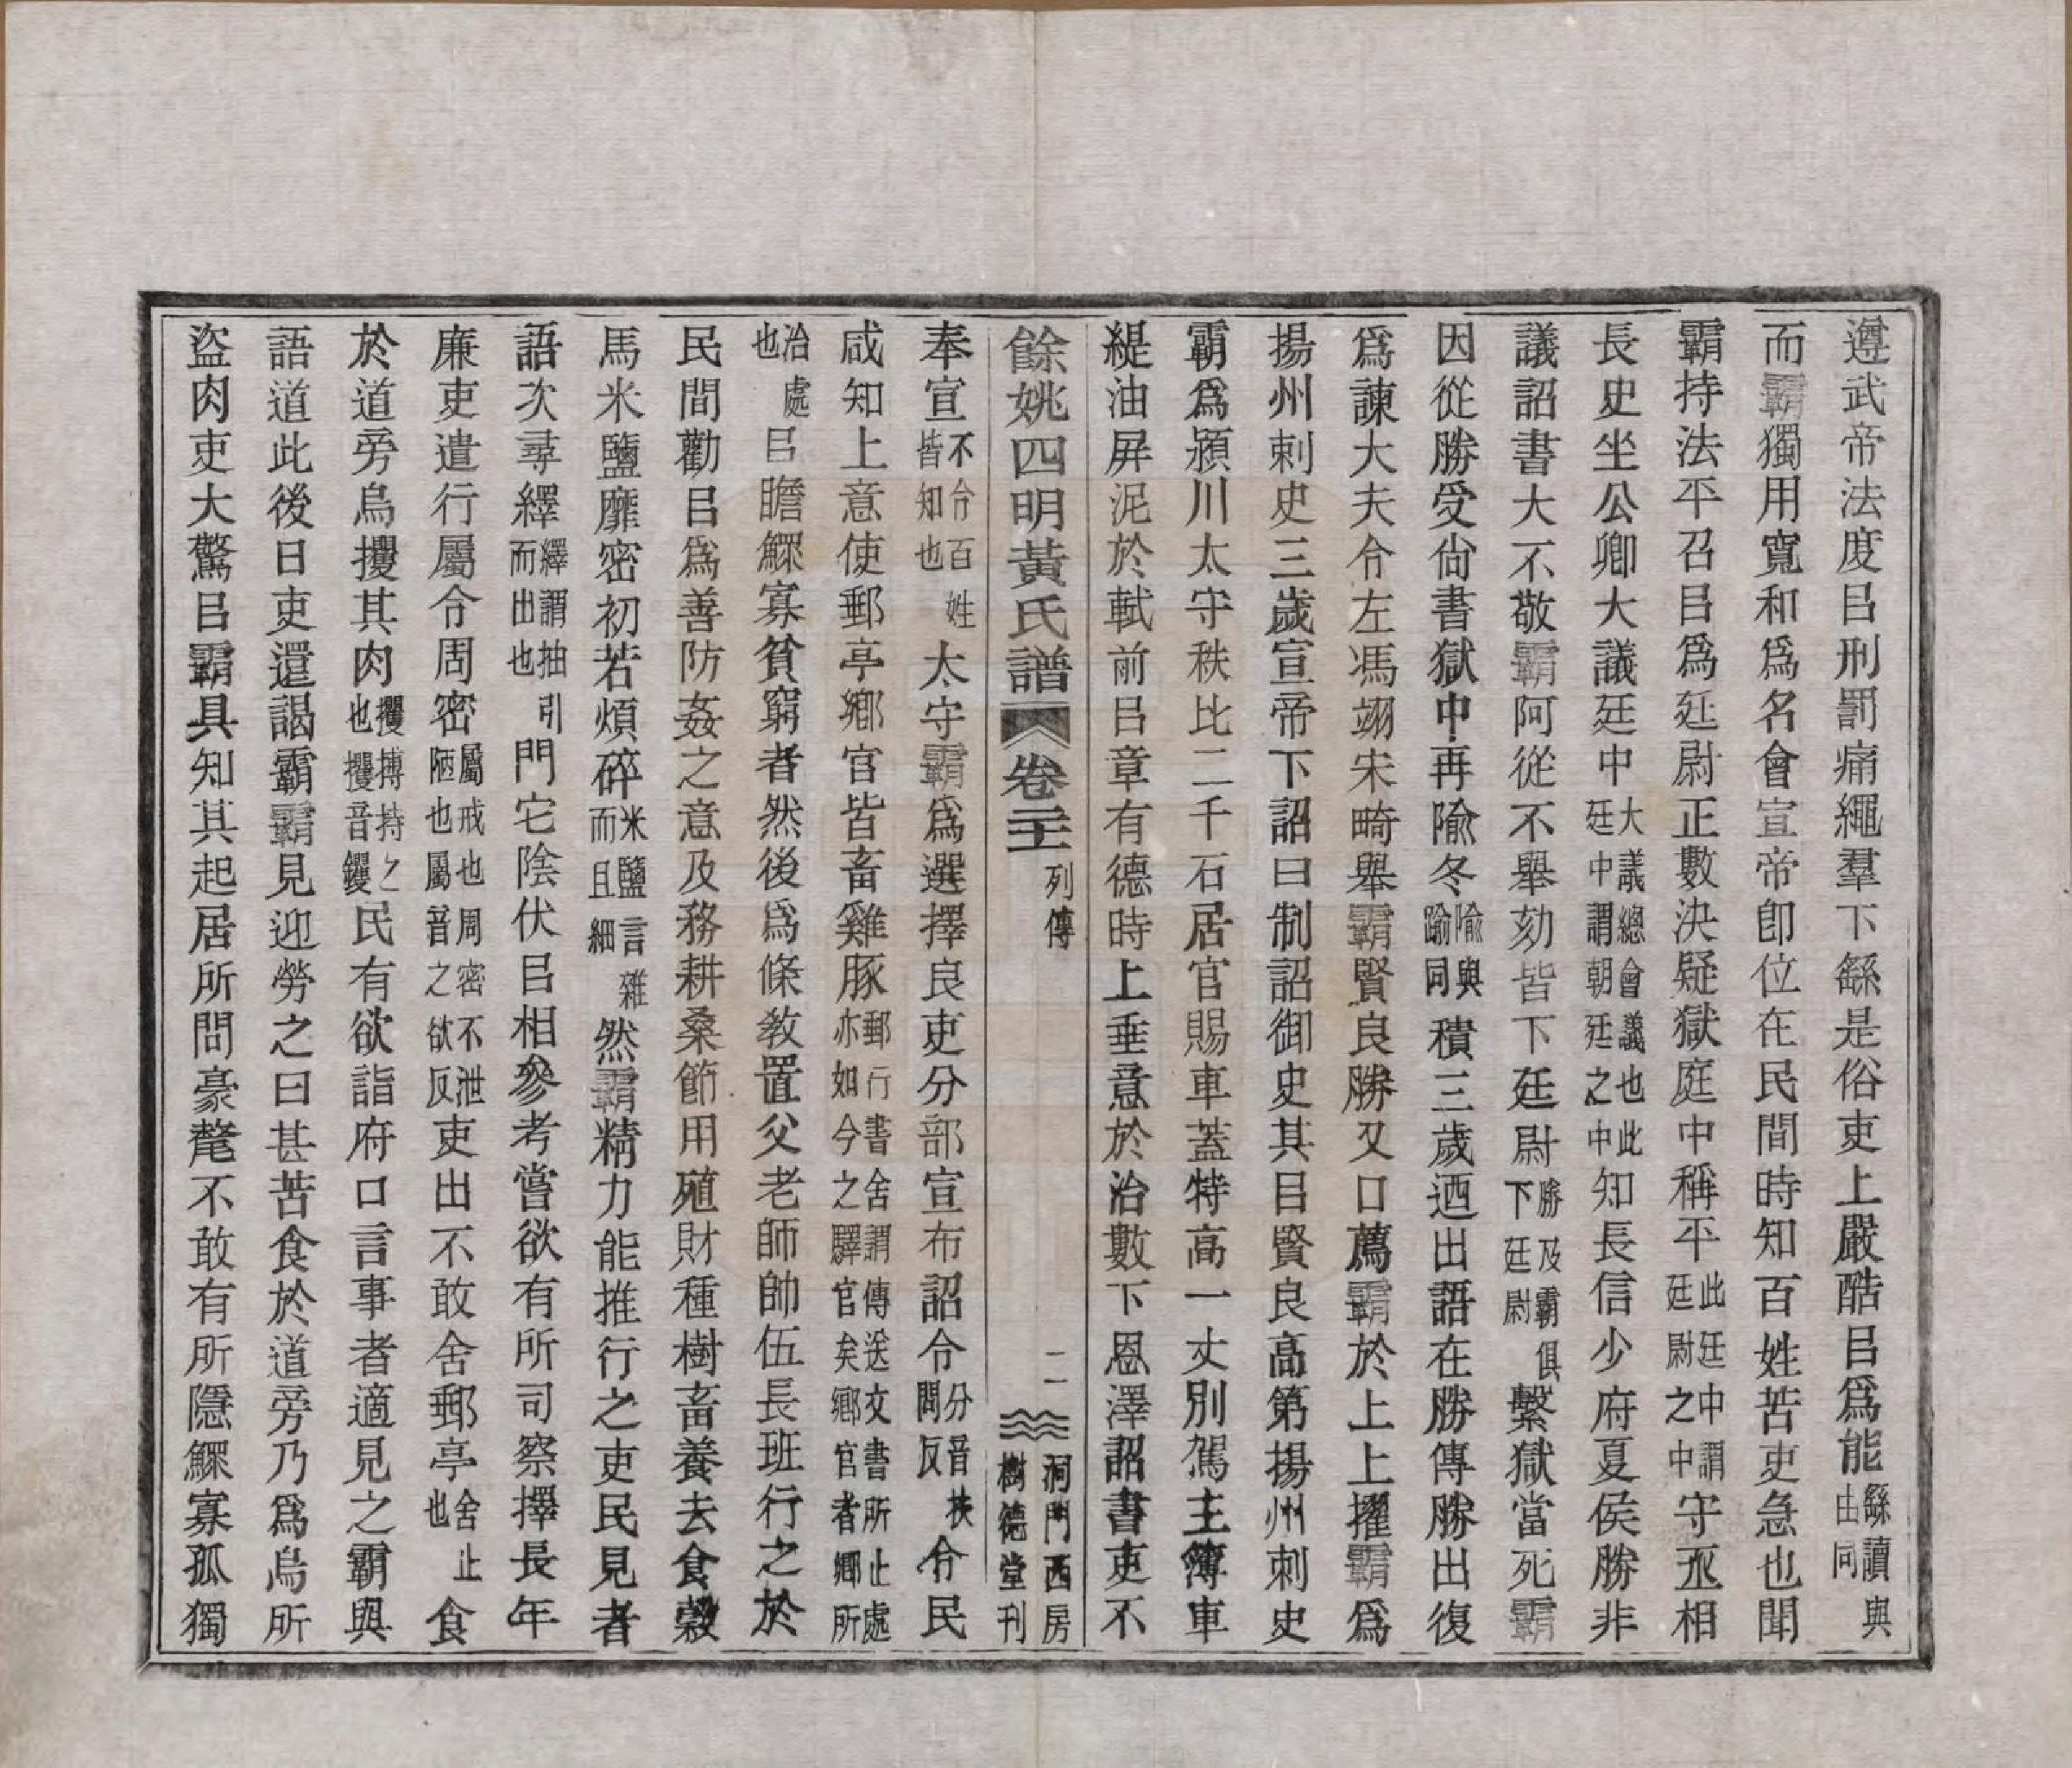 遵武帝法度㠯刑罰痛繩羣下繇是俗吏上嚴酷㠯爲能繇讀與由同
而霸獨用寬和爲名會宣帝卽位在民間時知百姓苦吏急也聞
霸持法平召㠯爲廷尉正數決疑獄庭中稱平此廷中謂廷尉之中守丞相
長史坐公卿大議廷中大議總會議也此廷中謂朝廷之中知長信少府夏侯勝非
議詔書大不敬霸阿從不舉劾皆下廷尉勝及霸俱下廷尉繫獄當死霸
因從勝受尙書獄中再隃冬隃與踰同積三歲迺出語在勝傳勝出復
爲諫大夫令左馮翊宋畸舉霸賢良勝又口薦霸於上上擢霸爲
揚州刺史三歲宣帝下詔曰制詔御史其㠯賢良高第揚州刺史
霸爲潁川太守秩比二千石居官賜車蓋特高一丈別駕主簿車
緹油屏泥於軾前㠯章有德時上垂意於治數下恩澤詔書吏不
餘姚四明黃氏譜 卷二十 列傳 二 洞門西房樹德堂刊
奉宣不令百姓皆知也太守霸爲選擇良吏分部宣布詔令分音扶問反令民
咸知上意使郵亭鄉官皆畜雞豚郵行書舍謂傳送文書所止處亦如今之驛官矣鄉官者鄉所
治處也㠯贍鰥寡貧窮者然後爲條敎置父老師帥伍長班行之於
民間勸㠯爲善防姦之意及務耕桑節用殖財種樹畜養去食穀
馬米鹽靡密初若煩碎米鹽言雜而且細然霸精力能推行之吏民見者
語次尋繹繹謂抽引而出也問它陰伏㠯相參考嘗欲有所司察擇長年
廉吏遣行屬令周密屬戒也周密不泄陋也屬音之欲反吏出不敢舍郵亭舍止也食
於道旁烏攫其肉攫搏持之也攫音钁民有欲詣府口言事者適見之霸與
語道此後日吏還謁霸霸見迎勞之曰甚苦食於道旁乃爲烏所
盜肉吏大驚㠯霸具知其起居所問豪氂不敢有所隱鰥寡孤獨